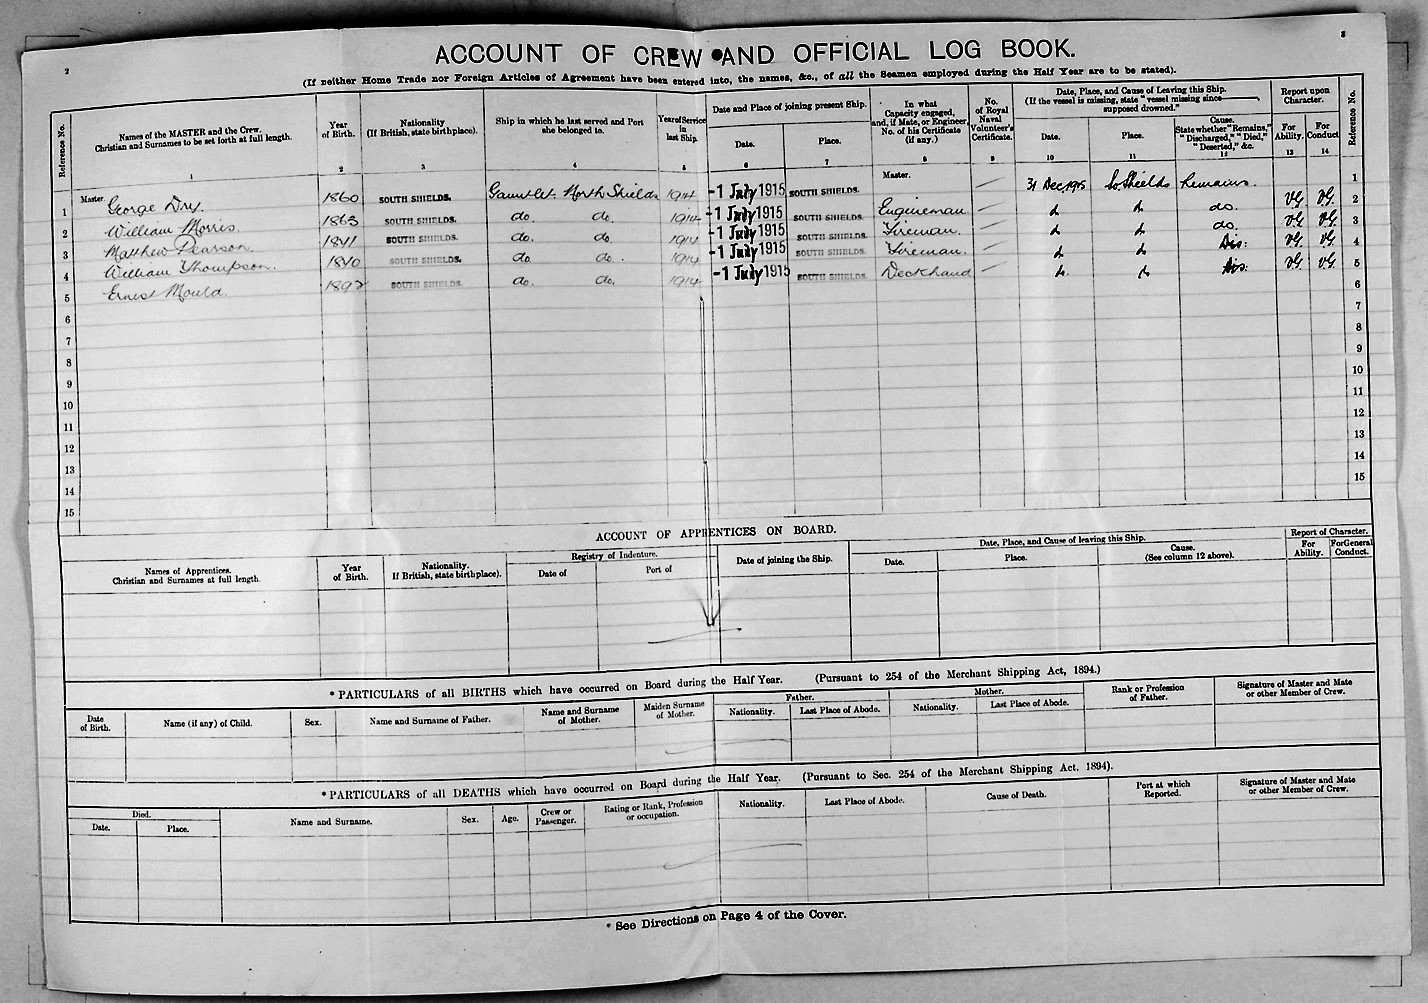 2
3
ACCOUNT OF CREW AND OFFICIAL LOG BOOK.
(If neither Home Trade nor Foreign Articles of Agreement have been entered into, the names, &c., of all the Seamen employed during the Half Year are to be stated).
Reference No. | Names of the MASTER and the Crew. Christian and Surnames to be set forth at full length. | Year of Birth. | Nationality (If British, state birthplace). | Ship in which he last served and Port she belonged to. | Year of Service in last Ship. | Date and Place of joining present Ship. | In what Capacity engaged, and, if Mate, or Engineer, No. of his Certificate (if any.) | No. of Royal Naval Volunteer's Certificate. | Date, Place, and Cause of Leaving this Ship. (If the vessel is missing, state "vessel missing since supposed drowned." | Report upon Character. | Reference No.
Date. | Place. | Date. | Place. | Cause. State whether "Remains," "Discharged," "Died," "Deserted," &c. | For Ability. | For Conduct
1 | 2 | 3 | 4 | 5 | 6 | 7 | 8 | 9 | 10 | 11 | 12 | 13 | 14
1 | Master George Dry. | 1860 | SOUTH SHIELDS. | Gauntlet. North Shields | 1914 | -1 July 1915 | SOUTH SHIELDS. | Master. | 31 Dec 1915 | So Shields | Remains. | VG | VG. | 1
2 | William Morris. | 1863 | SOUTH SHIELDS. | do. do. | 1914 | -1 July 1915 | SOUTH SHIELDS. | Engineman | do. | VG | VG. | 2
3 | Matthew Pearson. | 1841 | SOUTH SHIELDS. | do. do. | 1914 | -1 July 1915 | SOUTH SHIELDS. | Fireman. | do. | VG | VG. | 3
4 | William Thompson. | 1840 | SOUTH SHIELDS. | do do. | 1914 | -1 July 1915 | SOUTH SHIELDS. | Fireman. | Dis: | VG | VG. | 4
5 | Ernest Mould. | SOUTH SHIELDS. | do. do. | 1914 | -1 July 1915 | SOUTH SHIELDS. | Deckhand | Dis: | VG | VG. | 5
6 | 6
7 | 7
8 | 8
9 | 9
10 | 10
11 | 11
12 | 12
13 | 13
14 | 14
15 | 15
ACCOUNT OF APPRENTICES ON BOARD.
Names of Apprentices. Christian and Surnames at full length. | Year of Birth. | Nationality. If British, state birthplace). | Registry of Indenture. | Date of joining the Ship. | Date, Place, and Cause of leaving this Ship. | Report of Character.
Date of | Port of | Date. | Place. | Cause. (See column 12 above). | For Ability. | For General Conduct.
*PARTICULARS of all BIRTHS which have occurred on Board during the Half Year. (Pursuant to 254 of the Merchant Shipping Act, 1894.)
Date of Birth. | Name (if any) of Child. | Sex. | Name and Surname of Father. | Name and Surname of Mother. | Maiden Surname of Mother. | Father. | Mother. | Rank or Profession of Father. | Signature of Master and Mate or other Member of Crew.
Nationality. | Last Place of Abode. | Nationality. | Last Place of Abode.
*PARTICULARS of all DEATHS which have occurred on Board during the Half Year. (Pursuant to Sec. 254 of the Merchant Shipping Act, 1894).
Died. | Name and Surname. | Sex. | Age. | Crew or Passenger. | Rating or Rank, Profession or occupation. | Nationality. | Last Place of Abode. | Cause of Death. | Port at which Reported. | Signature of Master and Mate or other Member of Crew.
Date. | Place.
* See Directions on Page 4 of the Cover.